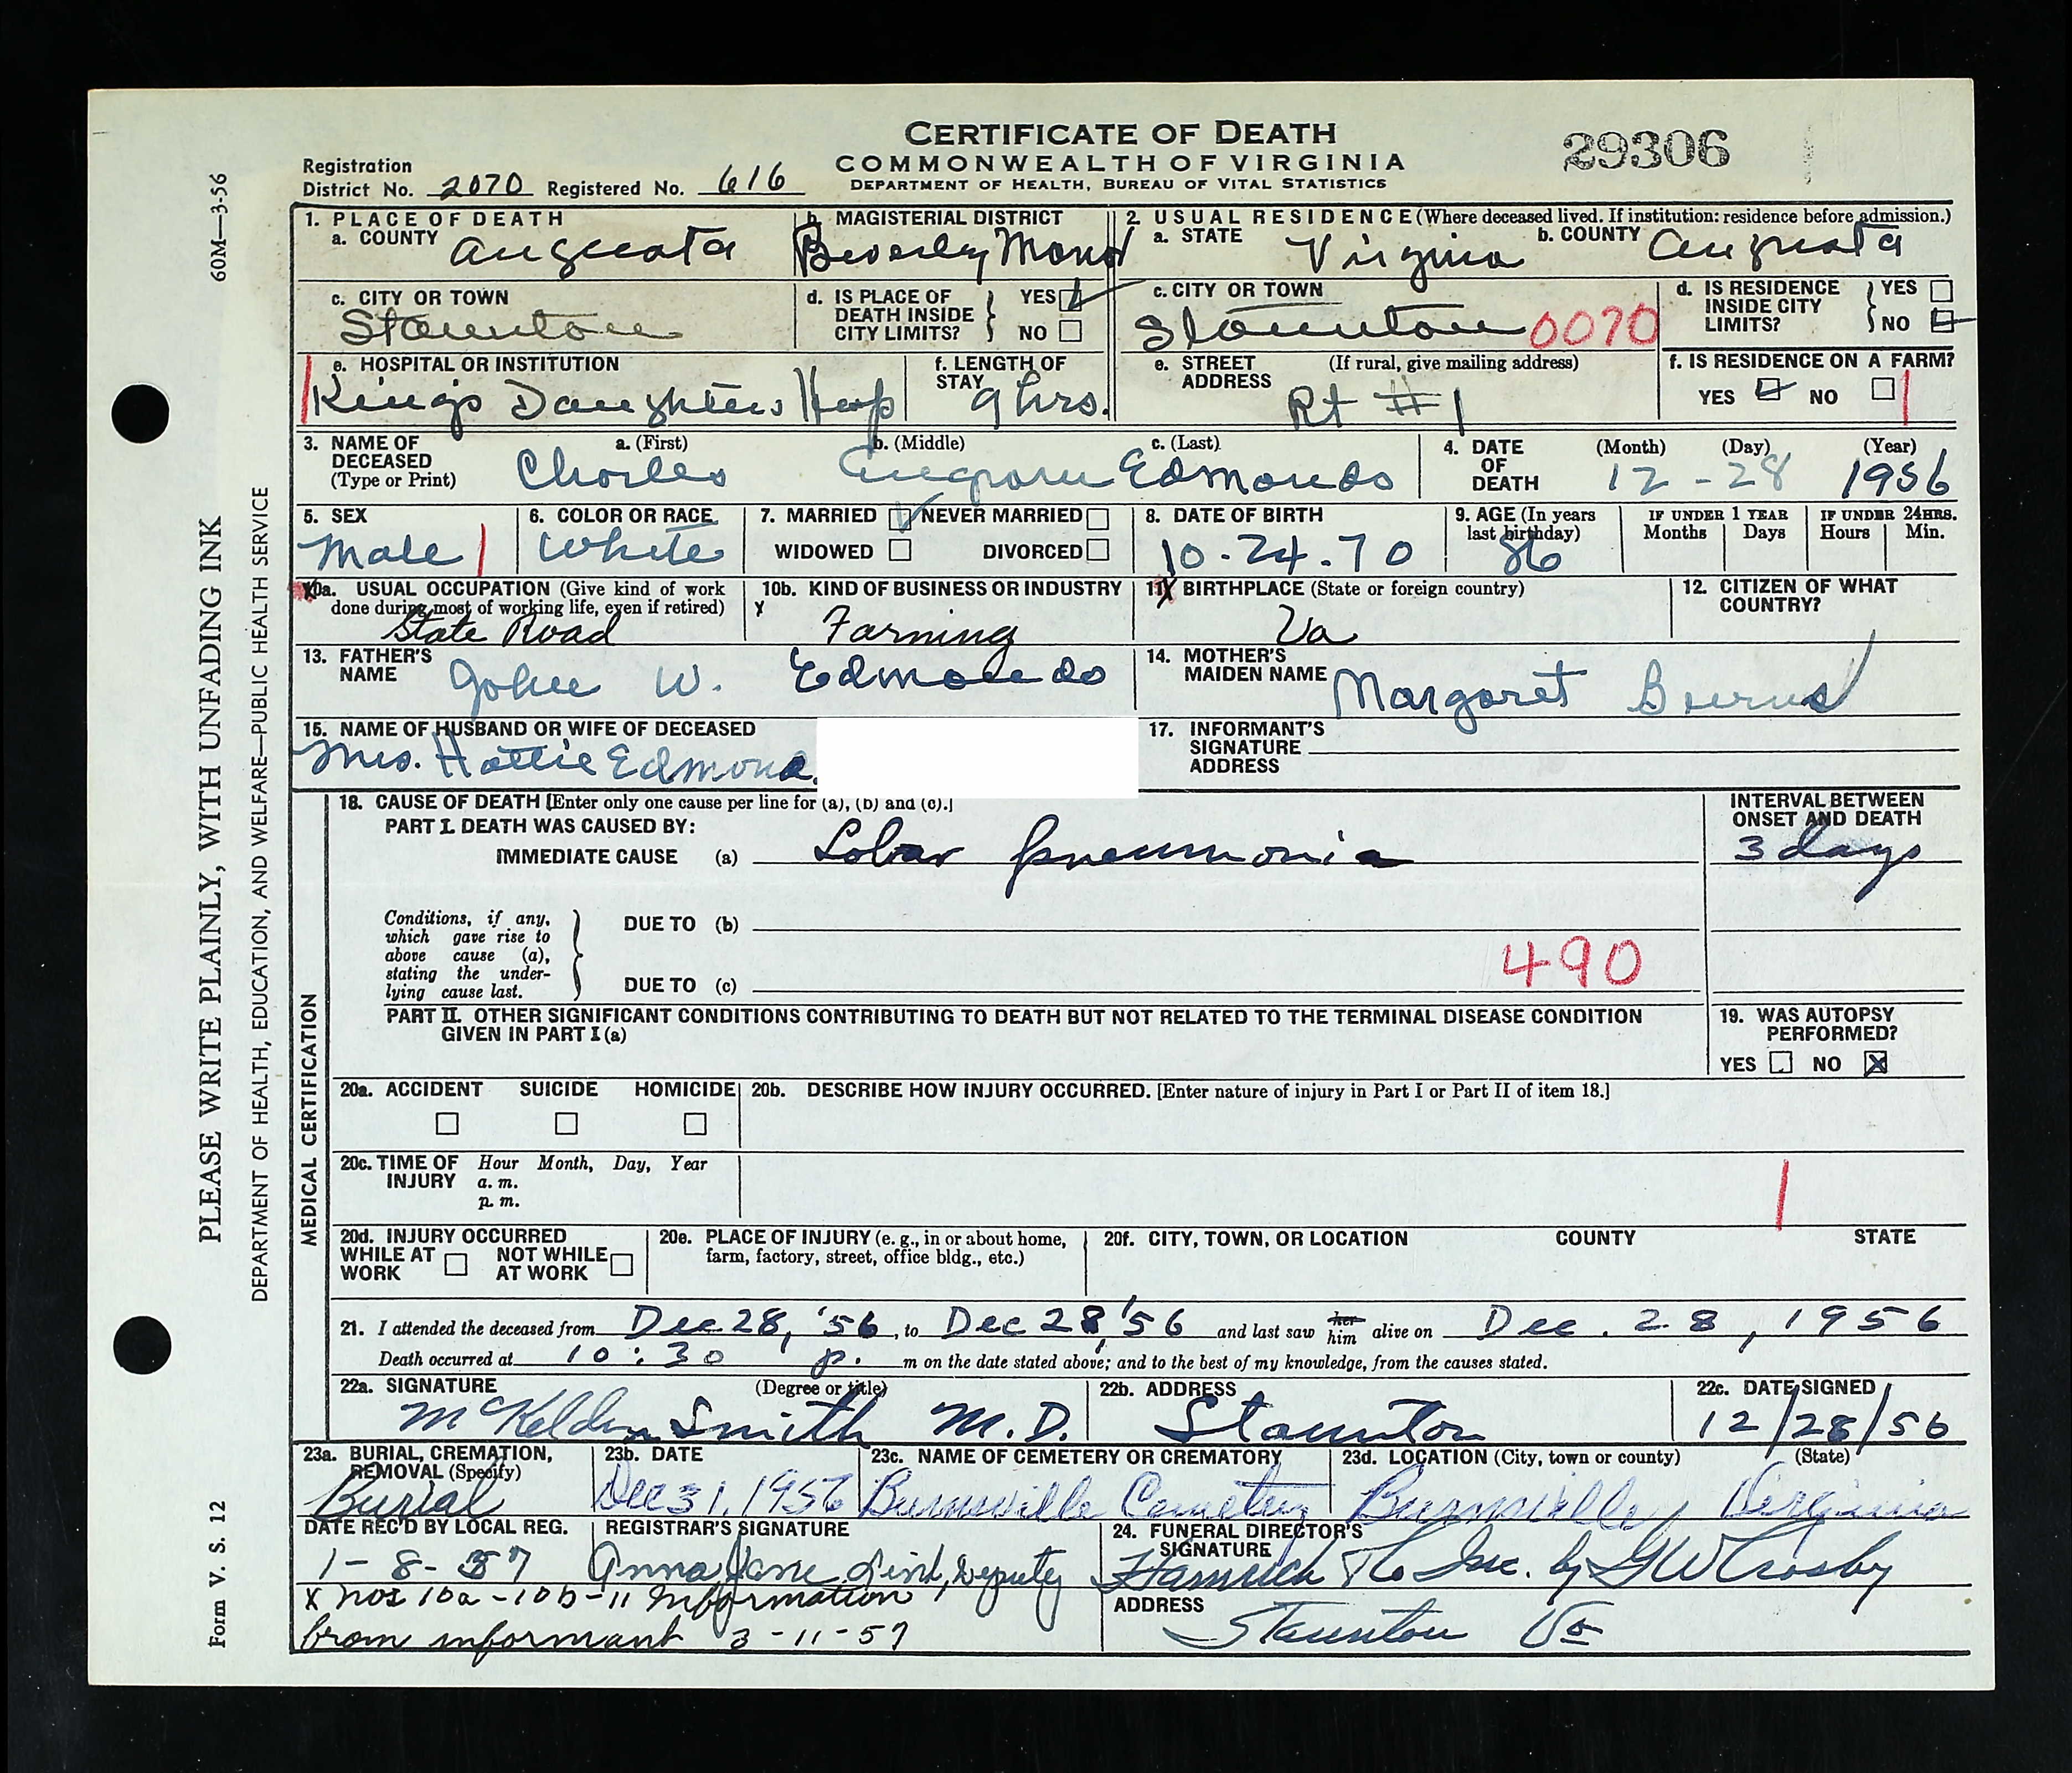 CERTIFICATE OF DEATH
COMMONWEALTH OF VIRGINIA
DEPARTMENT OF HEALTH, BUREAU OF VITAL STATISTICS
29306
Registration District No. 2070 Registered No. 616
60M—3-56
PLEASE WRITE PLAINLY, WITH UNFADING INK
DEPARTMENT OF HEALTH, EDUCATION, AND WELFARE—PUBLIC HEALTH SERVICE
Form V. S. 12
1. PLACE OF DEATH
a. COUNTY Augusta
b. MAGISTERIAL DISTRICT
Beverly Manor
2. USUAL RESIDENCE (Where deceased lived. If institution: residence before admission.)
a. STATE Virginia b. COUNTY Augusta
c. CITY OR TOWN
Staunton
d. IS PLACE OF DEATH INSIDE CITY LIMITS? YES NO
c. CITY OR TOWN
Staunton 0070
d. IS RESIDENCE INSIDE CITY LIMITS? YES NO
e. HOSPITAL OR INSTITUTION
King's Daughters Hosp
f. LENGTH OF STAY
9 hrs.
e. STREET ADDRESS (If rural, give mailing address)
Rt #1
f. IS RESIDENCE ON A FARM?
YES NO
3. NAME OF DECEASED (Type or Print)
a. (First) b. (Middle) c. (Last)
Charles Edmonds
4. DATE OF DEATH (Month) (Day) (Year)
12 - 28 1956
5. SEX
Male
6. COLOR OR RACE
White
7. MARRIED NEVER MARRIED
WIDOWED DIVORCED
8. DATE OF BIRTH
10-24-70
9. AGE (In years last birthday)
86
IF UNDER 1 YEAR
Months Days
IF UNDER 24HRS.
Hours Min.
10a. USUAL OCCUPATION (Give kind of work done during most of working life, even if retired)
State Road
10b. KIND OF BUSINESS OR INDUSTRY
X
Farming
11X BIRTHPLACE (State or foreign country)
Va
12. CITIZEN OF WHAT COUNTRY?
13. FATHER'S NAME John W. Edmonds
14. MOTHER'S MAIDEN NAME Margaret Burns
15. NAME OF HUSBAND OR WIFE OF DECEASED
Mrs. Hattie Edmond
17. INFORMANT'S SIGNATURE
ADDRESS
MEDICAL CERTIFICATION
18. CAUSE OF DEATH [Enter only one cause per line for (a), (b) and (c).]
PART I. DEATH WAS CAUSED BY:
IMMEDIATE CAUSE (a) Lobar pneumonia
INTERVAL BETWEEN ONSET AND DEATH
3 days
Conditions, if any, which gave rise to above cause (a), stating the underlying cause last.
DUE TO (b)
490
DUE TO (c)
PART II. OTHER SIGNIFICANT CONDITIONS CONTRIBUTING TO DEATH BUT NOT RELATED TO THE TERMINAL DISEASE CONDITION GIVEN IN PART I (a)
19. WAS AUTOPSY PERFORMED?
YES NO X
20a. ACCIDENT SUICIDE HOMICIDE
20b. DESCRIBE HOW INJURY OCCURRED. [Enter nature of injury in Part I or Part II of item 18.]
20c. TIME OF INJURY Hour Month, Day, Year
a. m.
p. m.
20d. INJURY OCCURRED
WHILE AT WORK NOT WHILE AT WORK
20e. PLACE OF INJURY (e. g., in or about home, farm, factory, street, office bldg., etc.)
20f. CITY, TOWN, OR LOCATION COUNTY STATE
21. I attended the deceased from Dec 28, '56, to Dec 28, '56 and last saw her him alive on Dec. 28, 1956
Death occurred at 10:30 p. m on the date stated above; and to the best of my knowledge, from the causes stated.
22a. SIGNATURE (Degree or title)
McKelden Smith M.D.
22b. ADDRESS
Staunton
22c. DATE SIGNED
12/28/56
23a. BURIAL, CREMATION, REMOVAL (Specify)
Burial
23b. DATE
Dec 31, 1956
23c. NAME OF CEMETERY OR CREMATORY
Burnsville Cemetery
23d. LOCATION (City, town or county) (State)
Burnsville, Virginia
DATE REC'D BY LOCAL REG.
1-8-57
REGISTRAR'S SIGNATURE
Anna Jane Deputy
24. FUNERAL DIRECTOR'S SIGNATURE
Hamrick & Co Inc. by GW Crosby
X Nos 10a-10b-11 Information
from informant 3-11-57
ADDRESS
Staunton Va